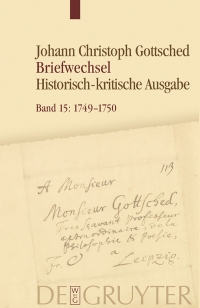 Johann Christoph Gottsched
Briefwechsel
Historisch-kritische Ausgabe
Band 15: 1749–1750
113
A Monsieur
Monsieur Gottsched,
professeur
extraordinaire, de la
Philosophie & Poesie,
Fr. a Leipzig.
DE GRUYTER
W
DE
G